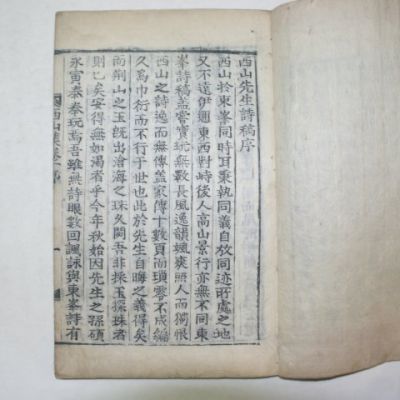 西山先生詩稿序
西山於東峯同時耳秉執同義自放同迹所處之地
又不遠伊邇東西對峙後人高山景行亦無不同東
峯詩稿盖嘗寶玩無數長風逸韻颯爽照人而獨恨
西山之詩逸而無傳盖家傳十數頁而瑣零不成編
久爲巾衍而不行于世也此於先生自晦之義得矣
而荊山之玉旣出滄海之珠久閟吾非採玉探珠者
則已矣安得無如渴者乎今年秋始因先生之孫碩
氷寅泰奉玩焉吾雖無詩眼數回諷詠與東峯詩有
西山集卷